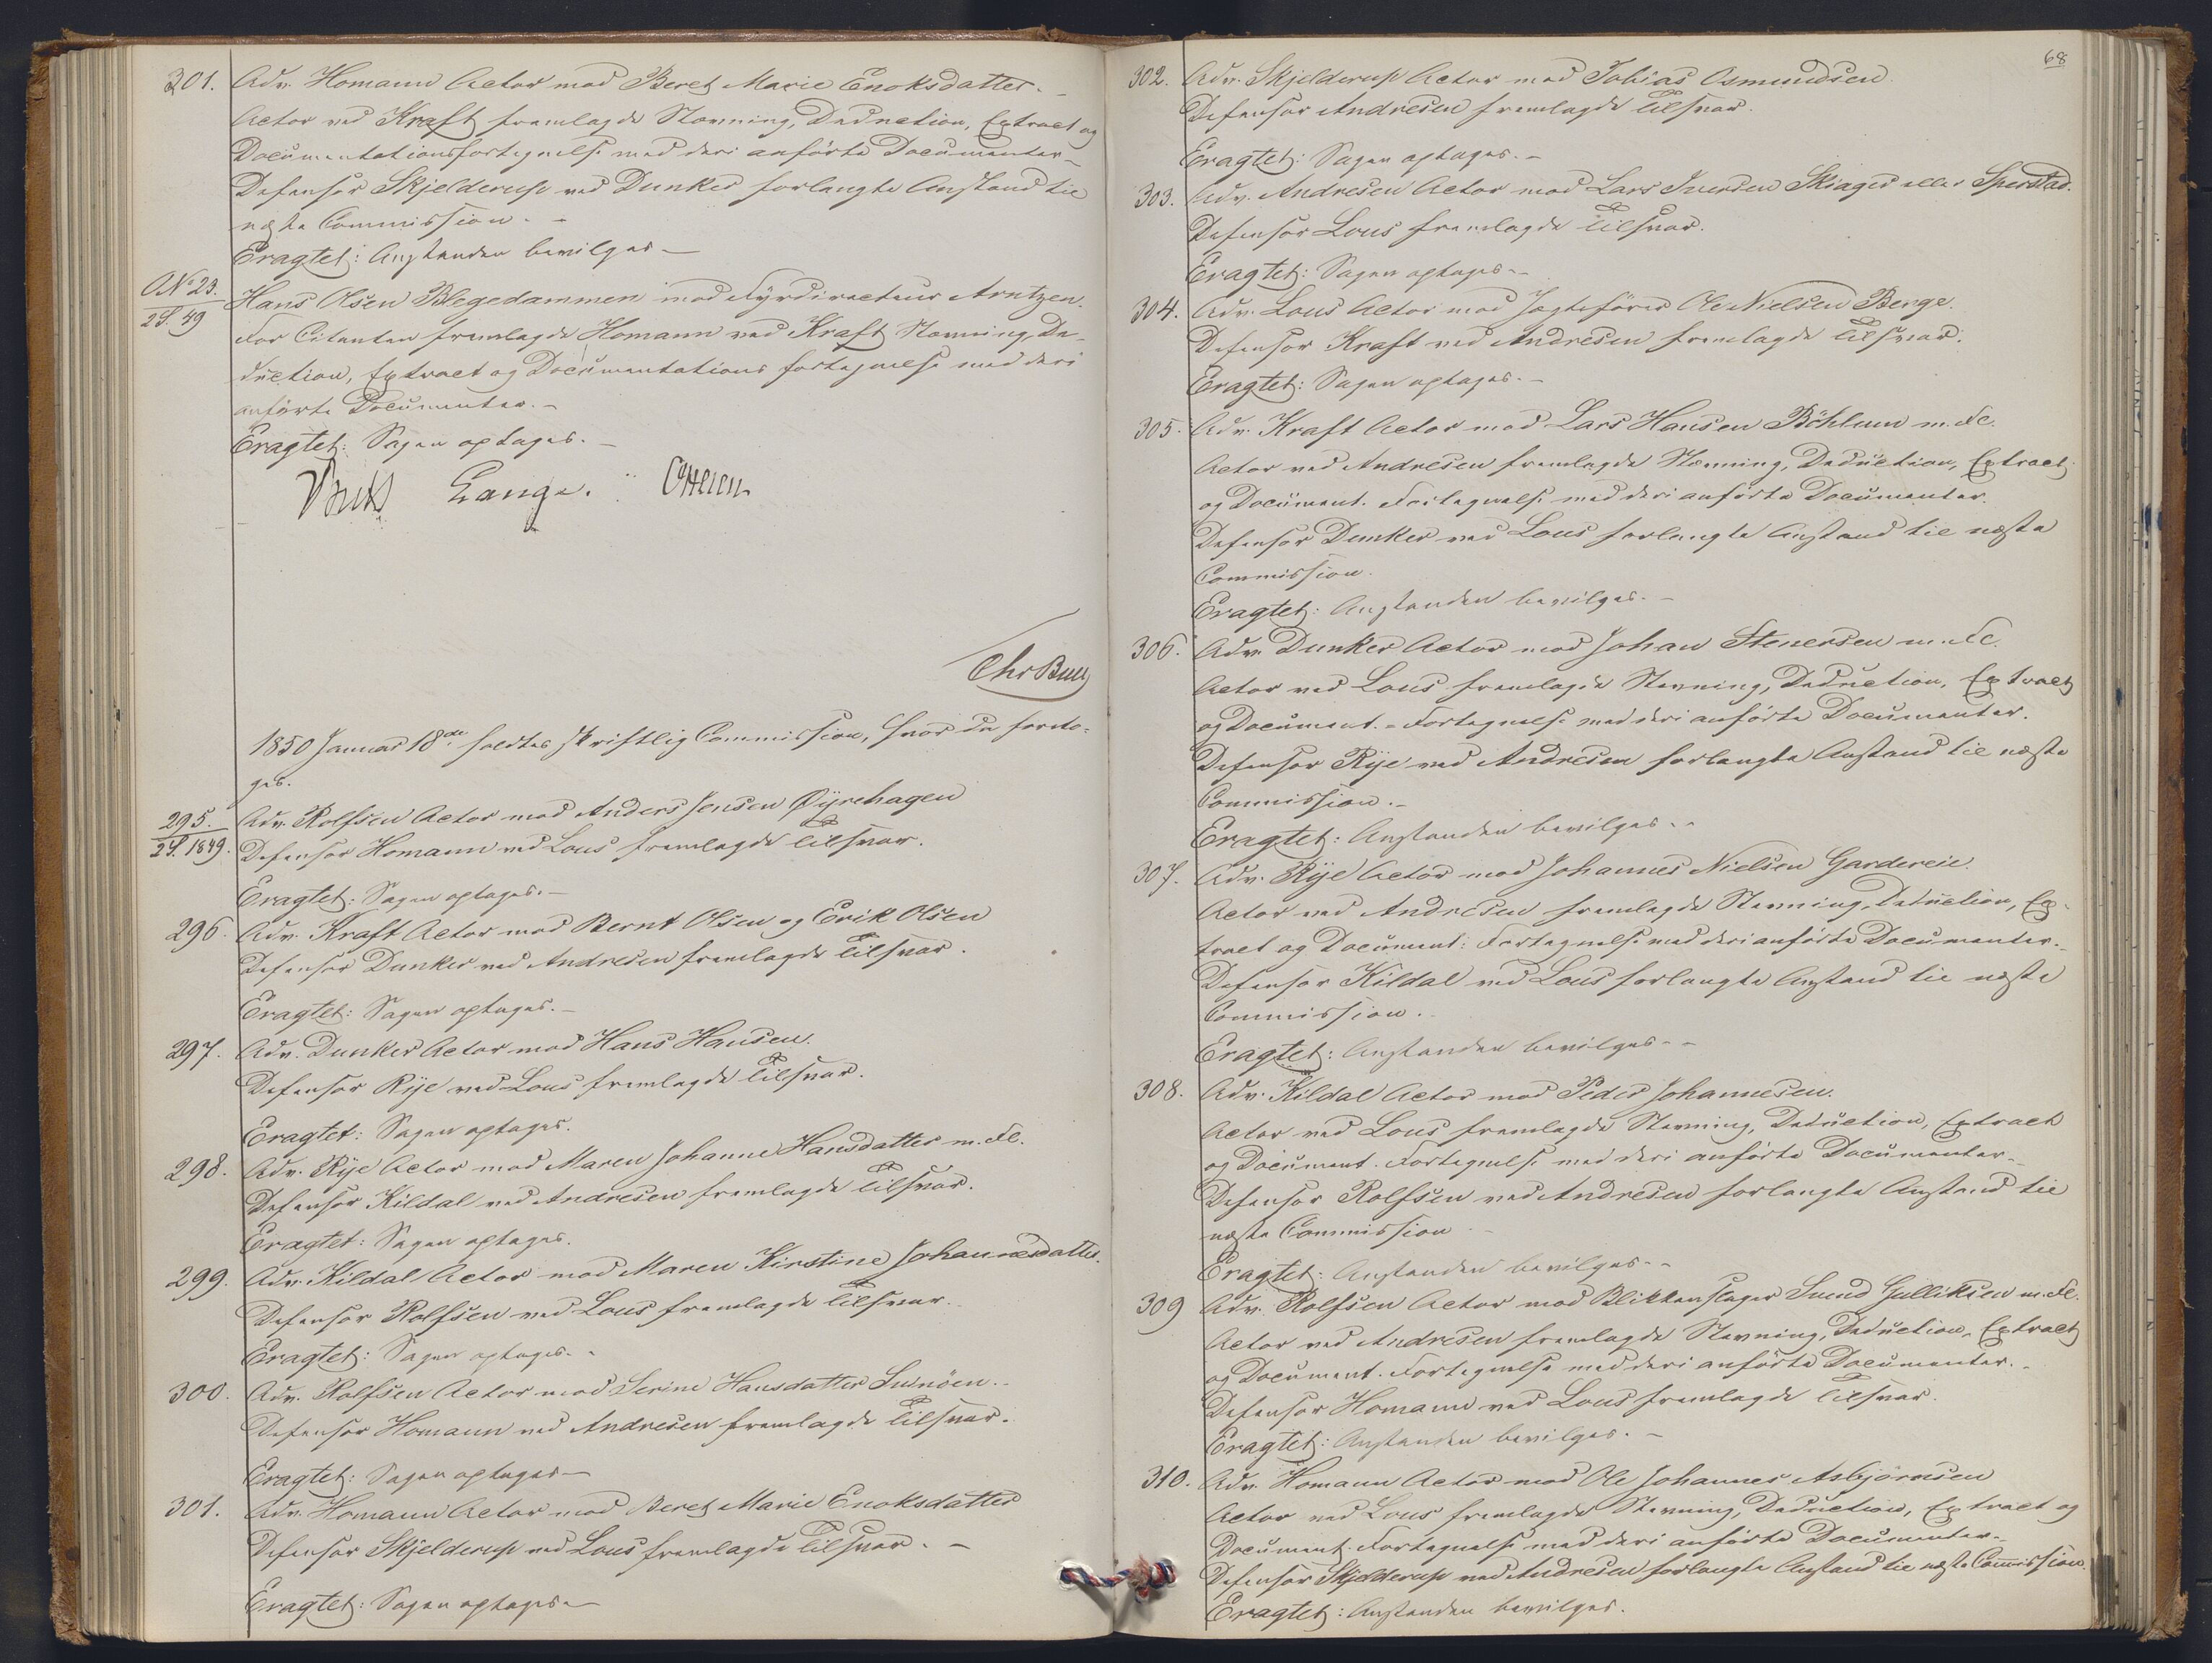 301. Adv. Homann Actor mod Beret Marie Enoksdatter. –
Actor ved Kraft fremlagde Stevning, Deduction, Extract og
Documentationsfortegnelse med deri anførte Documenter –
Defensor Skjelderup ved Dunker forlangte Anstand til
næste Commission. –
Eragtet: Anstanden bevilges –
O No 23. Hans Olsen Blegedammen mod Fyrdirecteur Arntzen.
2 S. 49 For Citanten fremlagde Homann ved Kraft Stevning, De-
duction, Extract og Documentations fortegnelse med deri
anførte Documenter. –
Eragtet: Sagen optages. –
Bull Lange.
Chr Bull
1850 Januar 18de holdtes skriftlig Commission, hvor da foreto-
ges.
295. Adv. Rolfsen Actor mod Anders Jensen Øyrehagen
2 S. 1849. Defensor Homann ved Lous fremlagde Tilsvar.
Eragtet: Sagen optages. –
296. Adv. Kraft Actor mod Bernt Olsen og Erik Olsen
Defensor Dunker ved Andresen fremlagde Tilsvar.
Eragtet: Sagen optages. –
297. Adv. Dunker Actor mod Hans Hansen.
Defensor Rye ved Lous fremlagde Tilsvar.
Eragtet: Sagen optages.
298. Adv. Rye Actor mod Maren Johanne Hansdatter m. Fl.
Defensor Kildal ved Andresen fremlagde Tilsvar.
Eragtet: Sagen optages.
299. Adv. Kildal Actor mod Maren Kirstine Johannesdatter.
Defensor Rolfsen ved Lous fremlagde Tilsvar.
Eragtet: Sagen optages. –
300. Adv. Rolfsen Actor mod Serine Hansdatter Svinöen. –
Defensor Homann ved Andresen fremlagde Tilsvar.
Eragtet: Sagen optages –
301. Adv. Homann Actor mod Beret Marie Enoksdatter
Defensor Skjelderup ved Lous fremlagde Tilsvar. –
Eragtet: Sagen optages –
68
302. Adv. Skjelderup Actor mod Tobias Osmundsen.
Defensor Andresen fremlagde Tilsvar.
Eragtet: Sagen optages. –
303. Adv. Andresen Actor mod Lars Iversen Skiager eller Sperstad.
Defensor Lous fremlagde Tilsvar.
Eragtet: Sagen optages –
304. Adv. Lous Actor mod Jagtefører Ole Nielsen Berge.
Defensor Kraft ved Andresen fremlagde Tilsvar.
Eragtet: Sagen optages. –
305. Adv. Kraft Actor mod Lars Hansen Böhlum m. Fl.
Actor ved Andresen fremlagde Stevning, Deduction, Extract
og Document. Fortegnelse med deri anførte Documenter.
Defensor Dunker ved Lous forlangte Anstand til næste
Commission.
Eragtet: Anstanden bevilges. –
306. Adv. Dunker Actor mod Johan Stenersen m. Fl.
Actor ved Lous fremlagde Stevning, Deduction, Extract
og Document. – Fortegnelse med deri anførte Documenter.
Defensor Rye ved Andresen forlangte Anstand til næste
Commission. –
Eragtet: Anstanden bevilges. –
307. Adv. Rye Actor mod Johannes Nielsen Gardereie.
Actor ved Andresen fremlagde Stevning, Deduction, Ex-
tract og Document: Fortegnelse med deri anførte Documenter. –
Defensor Kildal ved Lous forlangte Anstand til næste
Commission.
Eragtet: Anstanden bevilges –
308. Adv. Kildal Actor mod Peder Johannesen.
Actor ved Lous fremlagde Stevning, Deduction, Extract
og Document. Fortegnelse med deri anførte Documenter –
Defensor Rolfsen ved Andresen forlangte Anstand til
næste Commission –
Eragtet: Anstanden bevilges. –
309 Adv. Rolfsen Actor mod Blikkenslager Svend Gulliksen m. Fl.
Actor ved Andresen fremlagde Stevning, Deduction, Extract
og Document. Fortegnelse med deri anførte Documenter. –
Defensor Homann ved Lous fremlagde Tilsvar.
Eragtet: Anstanden bevilges. –
310. Adv. Homann Actor mod Ole Johannes Asbjørnsen
Actor ved Lous fremlagde Stevning, Deduction, Extract og
Document. Fortegnelse med deri anførte Documenter –
Defensor Skjelderup ved Andresen forlangte Anstand til næste Commission.
Eragtet: Anstanden bevilges.